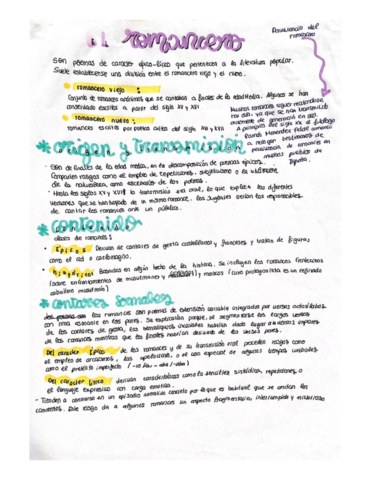 el romancero
Pervivencia del
romancero
Son poemas de caracter épico-lírico que pertenecen a la literatura popular.
Suele establecerse una división entre el romancero viejo y el nuevo.
• romancero viejo:
Conjunto de romances anónimos que se cantaban a finales de la edad Media. Algunos se han
conservado escritos a partir del siglo XV
• romancero nuevo:
romances escritos por poetas cultos del siglo XVI y XVII
Muchos romances siguen recitándose
hoy día ya que se han transmitido
oralmente de generación en
A principios del siglo XX el filólogo
Ramón Menéndez Pidal
a recoger testimonios de
pervivencia de romances en
muchos pueblos de
España.
* origen y transmisión
- Son de finales de la edad media, en la descomposición de poemas épicos.
Comparten rasgos como el empleo de repeticiones,
de la naturaleza, como escenarios de los poemas.
- Hasta los siglos XV y XVI la transmisión era oral, lo que explica las diferentes
versiones que se han hallado de un mismo romance. Los juglares serían los responsables
de cantar los romances ante un público.
* contenido
clases de romances:
• Épicos: Derivan de cantares de gesta castellanos y franceses y tratan de figuras
como el cid o carlomagno.
• históricos: Basados en algún hecho de la historia. Se incluyen los romances fronterizos
(sobre enfrentamientos de musulmanes y cristianos) y moriscos (cuyo protagonista es un refinado
caballero musulmán)
*
los romances son poemas de extensión variable integrados por versos octosílabos
con rima asonante en los pares. Se explicación porque, al segmentarse los largos versos
de los cantares de gesta, los hemistiquios iniciales habrían dado lugar a versos impares
de los romances mientras que los finales habrían derivado de los versos pares.
Del carácter épico de los romances y de su transmisión oral proceden rasgos como
el empleo de oraciones, las apelaciones, o el uso especial de algunos tiempos verbales
como el pretérito imperfecto
Del carácter lírico derivan características como la sencillez sintáctica, repeticiones, o
el lenguaje expresivo con carga emotiva.
- Tienden a centrarse en un episodio narrativo concreto por lo que es habitual que se omitan los
comienzos. Este rasgo da a algunos romances un aspecto fragmentario, interrumpido y misterioso